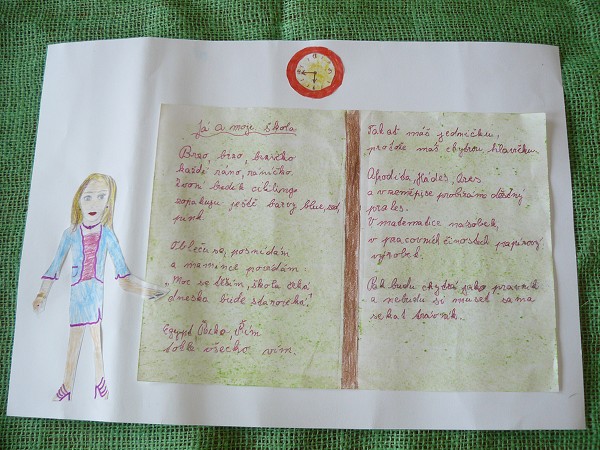 Já a moje škola
Brzo, brzo, brzičko
každé ráno, raníčko.
Zvoní budík cililing
opakuju ještě barvy blue, red,
pink.
Obleču se, posnídám
a mamince povídám.
„Moc se těším, škola čeká
dneska bude starověká!"
Egypt, Řecko Řím
tohle všecko vím.
Tak ať máš jedničku,
protože máš chytrou hlavičku.
Afrodita, Hádes, Áres
a v zeměpise probírám deštný
prales.
V matematice násobek,
v pracovních činostech papírový
výrobek.
Pak budu chytrá jako právník
a nebudu si muset sama
sekat trávník.